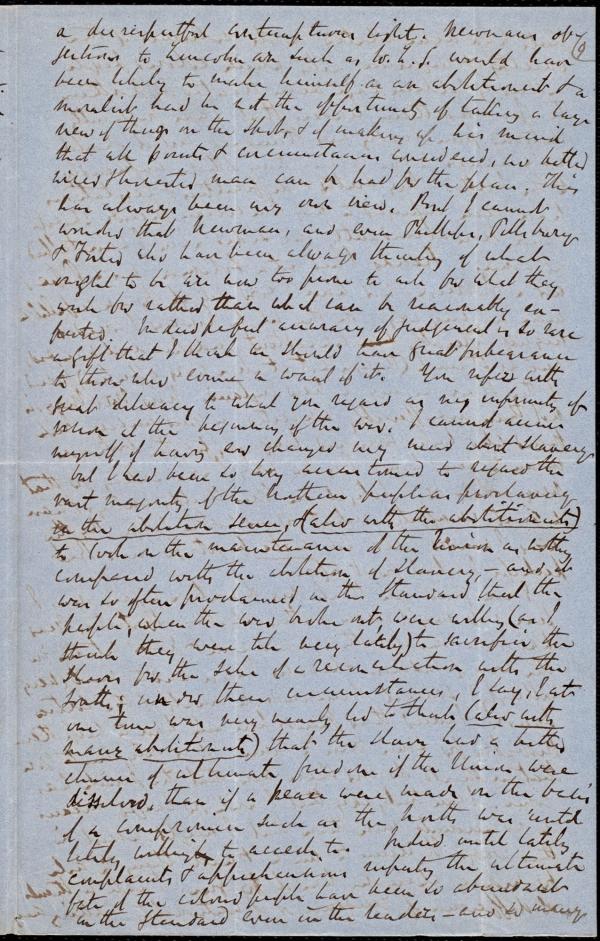 a disrespectful contemptuous light. Newman's ob- 9
jections to Lincoln are such as W. L. G. would have
been likely to make himself as an abolitionist & a
moralist had he not the opportunity of taking a large
view of things on the spot, & of making up his mind
that all points & circumstances considered, no better
nor honester man can be had for the place. This
has always been my own view. But I cannot
wonder that Newman, and even Phillips, Pillsbury
& Foster who have been always thinking of what
ought to be are now too prone to ask for what they
wish for rather than what can be reasonably ex-
pected. Indeed perfect accuracy of judgement is so rare
a gift that I think we should have great forbearance
to those who evince a want of it. You refer with
great delicacy to what you regard as my infirmity of
vision at the beginning of the war. I cannot accuse
myself of having ever changed my mind about Slavery
but I had been so long accustomed to regard the
vast majority of the Northern people as proslavery
in the abolition sense, & (also with the abolitionists)
to look on the maintenance of the Union as nothing
compared with the abolition of Slavery – and it
was so often proclaimed in the Standard that the
people, when the war broke out, were willing (as I
think they were till very lately) to sacrifice the
slaves for the sake of a reconciliation with the
South; under these circumstances, I say, I at
one time was very nearly led to think (also with
many abolitionists) that the slaves had a better
chance of ultimate freedom if the Union were
dissolved, than if a peace were made on the basis
of a compromise such as the North was until
lately willing to accede to. Indeed until lately
complaints & apprehensions respecting the ultimate
fate of the colored people have been so abundant
in the Standard even in the leaders – and so many